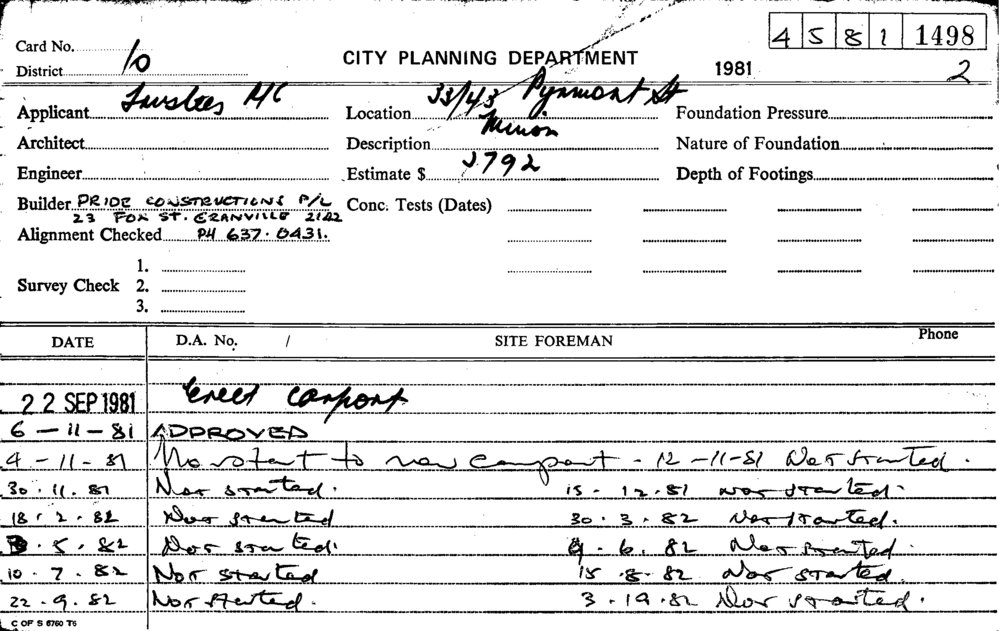 4 5 8 1 1498
Card No. 10
CITY PLANNING DEPARTMENT
District
1981 2
Applicant Trustees
Location 33/43 Pyrmont St
Foundation Pressure
Architect
Description Minor
Nature of Foundation
Engineer
Estimate $ 792
Depth of Footings
Builder PRIDE CONSTRUCTIONS P/L
23 FOX ST. GRANVILLE 2142
Conc. Tests (Dates)
Alignment Checked PH 637·0431.
1.
Survey Check 2.
3.
DATE D.A. No. / SITE FOREMAN Phone
22 SEP 1981 Erect carport
6-11-81 APPROVED
4-11-81 No start to new carport - 12-11-81 Not started.
30·11·81 Not started. 15-12·81 Not started.
18·2·82 Not started 30·3·82 Not started.
5·82 Not started. 6·82 Not started.
10·7·82 Not started 15·8·82 Not started.
22·9·82 Not started. 3-19·82 Not started.
C OF S 6760 T6